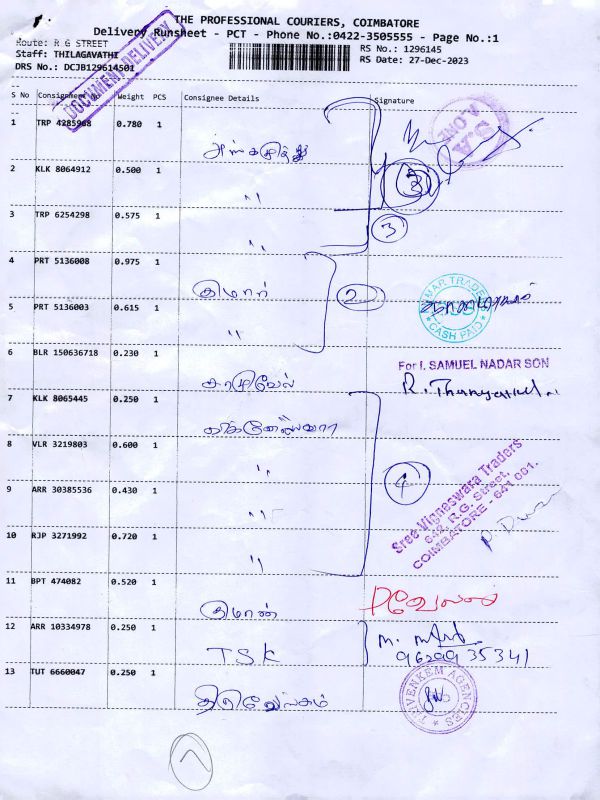 THE PROFESSIONAL COURIERS, COIMBATORE
Delivery Runsheet - PCT - Phone No.:0422-3505555 - Page No.:1
Route: R G STREET
RS No.: 1296145
Staff: THILAGAVATHI
RS Date: 27-Dec-2023
DRS No.: DCJB129614501
DOCUMENT DELIVERY
S No Consignment No Weight PCS Consignee Details Signature
1 TRP 4285968 0.780 1
2 KLK 8064912 0.500 1 "
3 TRP 6254298 0.575 1 "
3
4 PRT 5136008 0.975 1 குமார்
2
5 PRT 5136003 0.615 1 "
CASH PAID
6 BLR 150636718 0.230 1
For I. SAMUEL NADAR SON
7 KLK 8065445 0.250 1
8 VLR 3219803 0.600 1 "
4
9 ARR 30385536 0.430 1 "
10 RJP 3271992 0.720 1 "
Sree Vigneswara Traders
642, R.G. Street,
COIMBATORE - 641 001.
11 BPT 474082 0.520 1
12 ARR 10334978 0.250 1 TSK
9629935341
13 TUT 6660047 0.250 1
THIVENKEM AGENCIES